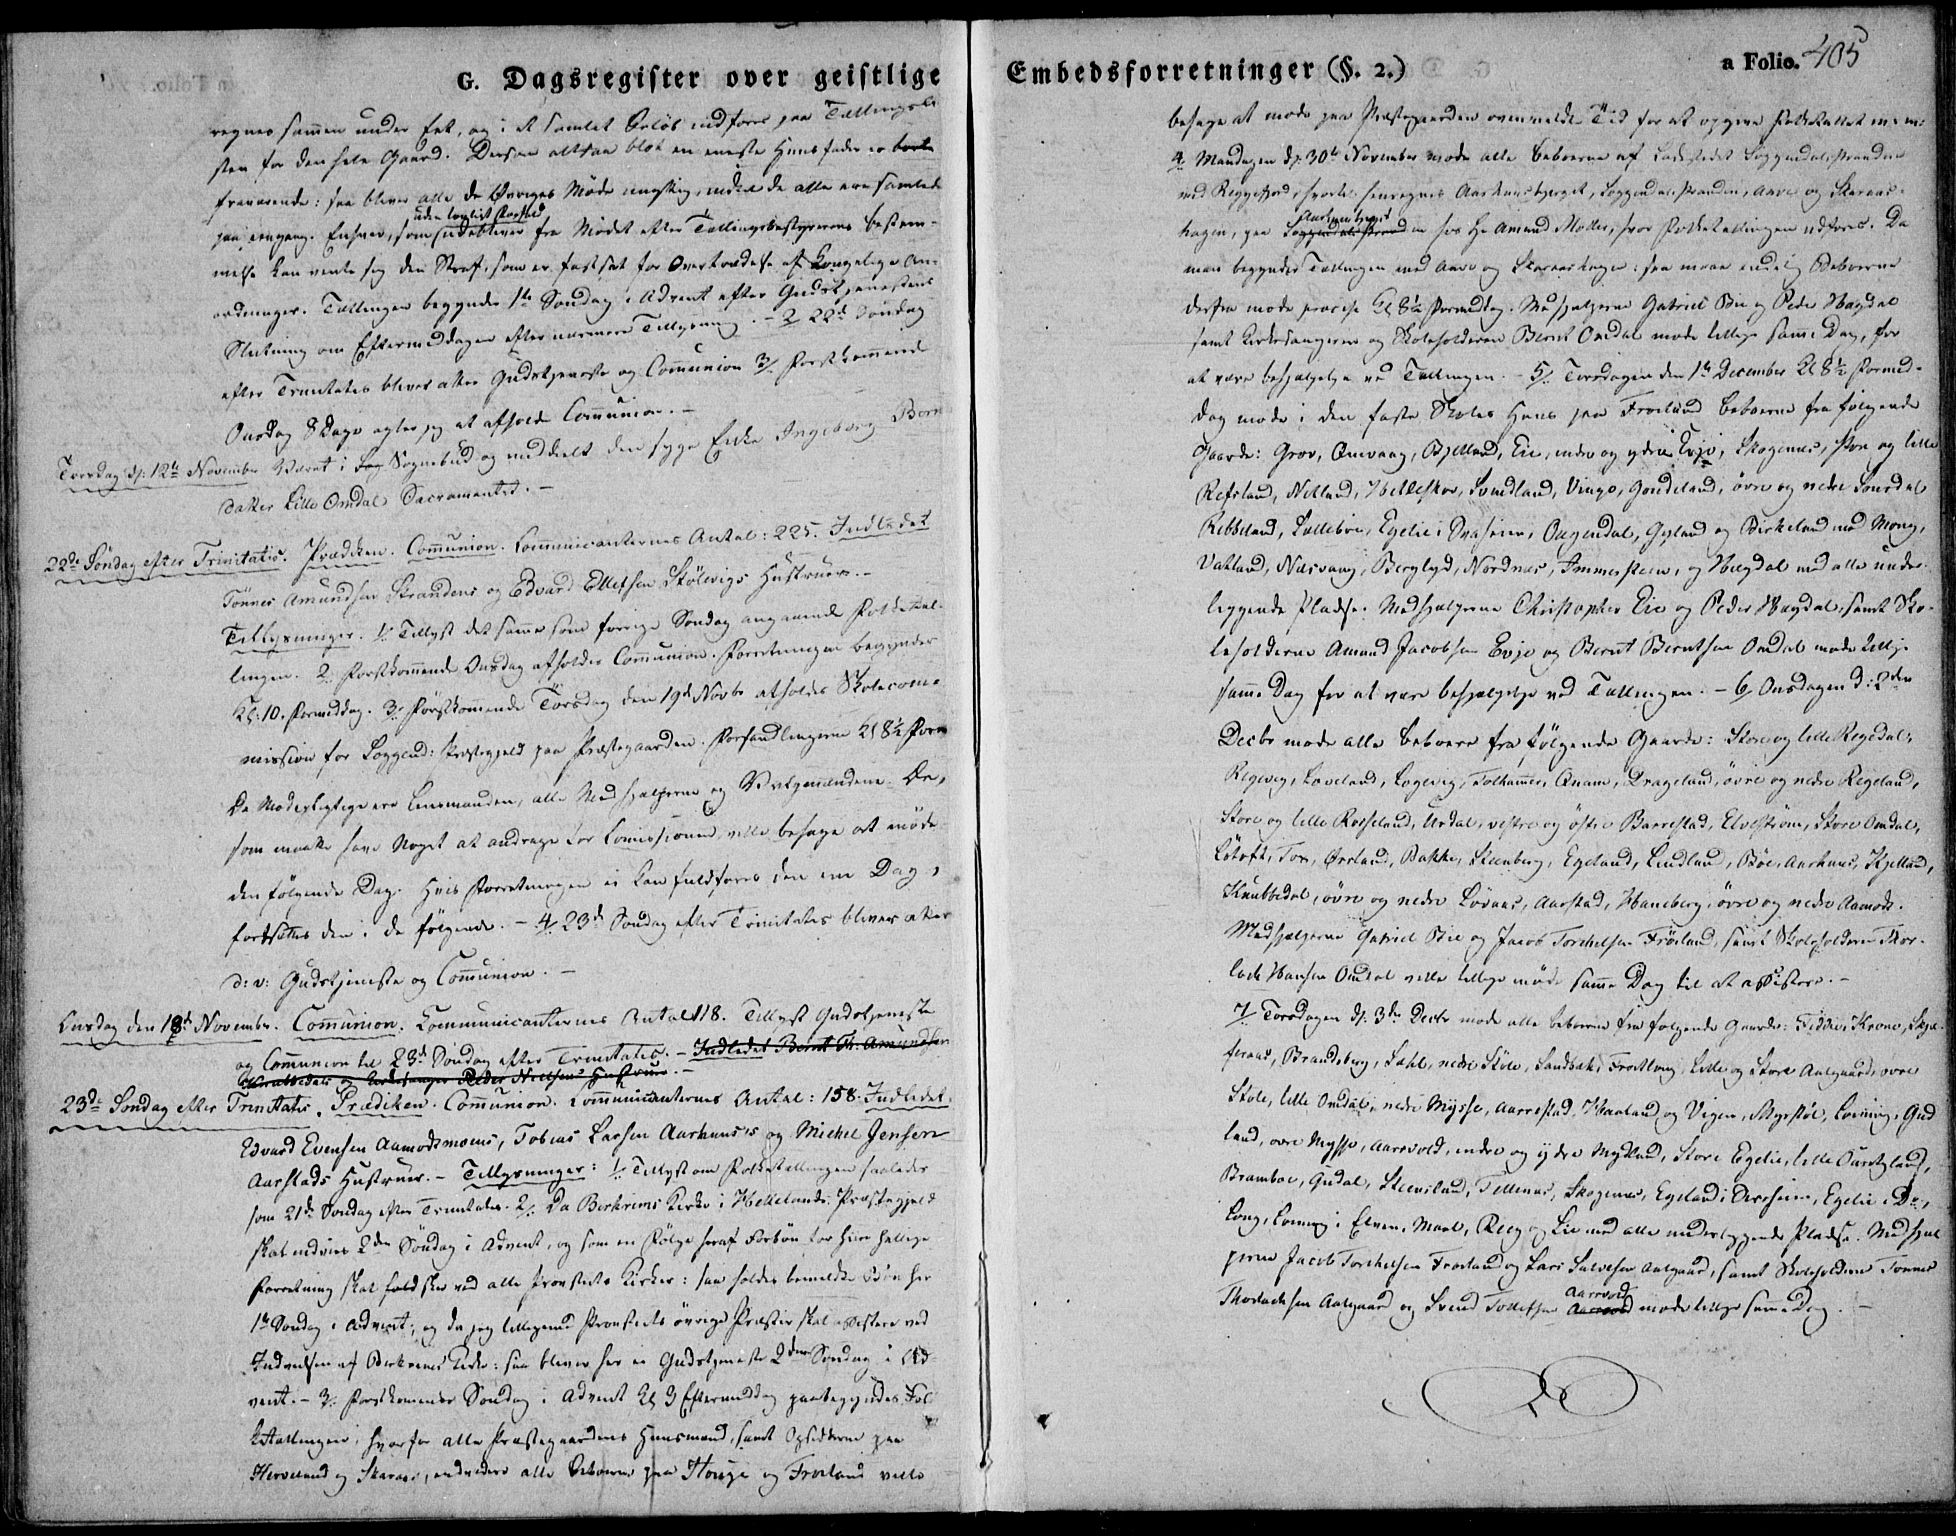 G. Dagsregister over geistlige
regnes sammen under Eet, og i et samlet Beløb indføres paa Tællingsli-
sten for den hele Gaard. Dersom altsaa blot en eneste Huusfader er
fraværende: saa bliver alle de Øvriges Møde unyttig, indtil de alle ere samlede
uden lovligt Forfald
paa eengang. Enhver, som udebliver fra Mødet efter Tællingsbestyrerens bestem-
melse kan vente sig den Straf, som er fastsat for Overtrædelse af Kongelige An-
ordninger. Tællingen begynder 1ste Søndag i Advent efter Gudstjenestens
Slutning om Eftermiddagen efter nærmere Tillysning. - 2/ 22de Søndag
efter Trinitatis bliver atter Gudstjeneste og Communion 3/. Førstkommende
Onsdag 8 Dage agter jeg at afholde Communion. -
Torsdag d: 12te November Været i Sognebud og meddeelt den syge Enke Ingeborg Bern
datter Lille Omdal Sacramentet. -
22de Søndag efter Trinitatis. Prædiken. Communion. Communicanternes Antal: 225. Indledet
Tönnes Amundsen Strandens og Edvard Ellefsen Skölevigs Hustruer. -
Tillysninger. 1/. Tillyst det samme som forrige Søndag angaaende Folketæl-
lingen. 2/. Førstkommende Onsdag afholdes Communion. Forretningen begynder
Kl: 10. Formiddag. 3/. Førstkommende Torsdag den 19de Novbr afholdes Skolecom-
mission for Soggend: Præstegjeld paa Præstegaarden. Forhandlingerne Kl 8½ Form
De Mødepligtige ere Lensmanden, alle Medhjælperne og Valgmændene. De,
som maatte have Noget at andrage for Comissionen ville behage at møde
den følgende Dag. Hvis Forretningen ei kan fuldføres den ene Dag,
fortsættes den i de følgende. - 4/ 23de Søndag efter Trinitatis bliver atter
d: v: Gudstjeneste og Communion. -
Onsdag den 18de November. Communion. Communicanternes Antal 118. Tillyst Gudstjeneste
og Communion til 23de Søndag efter Trinitatis. - Indledet Bernt Th: Amundsen
Knubedals og Kirkesanger Peder Nielsens Hustruer. -
23de Søndag efter Trinitatis. Prædiken. Communion. Communicanternes Antal: 158. Indledet
Edvard Evensen Aamodsmoens, Tobias Larsen Aarhuus's og Michel Jensen
Aarstads Hustruer. - Tillysninger: 1/. Tillyst om Folketællingen saaledes
som 21de Søndag efter Trinitatis. 2/. Da Berkreims Kirke i Hellelands Præstegjeld
skal indvies 2den Søndag i Advent, og som en Følge heraf Forbön for hiin hellige
Forretning skal holdes ved alle Provstiets Kirker: saa holdes bemeldte Bön her
1ste Søndag i Advent; og da jeg tilligemed Provstiets øvrige Præster skal assistere ved
Indvielsen af Berkreims Kirke: saa bliver her ei Gudstjeneste 2den Søndag i Ad-
vent. - 3/. Førstkommende Søndag i Advent Kl 3 Eftermiddag paabegyndes Fol-
ketællingen, hvorfor alle Præstegaardens Huusmænd, samt Opsidderne paa
Hervelund og Skaraas, endvidere alle Beboerne paa Houge og Frøeland ville

Embedsforretninger (§. 2.)
a Folio. 405
behage at møde paa Præstegaarden ovenmeldte Tid for at opgive Folketallet m: m:
4/. Mandagen d: 30te November møde alle beboerne af Ladestedet Soggendalsstranden
med Reggefjord, hvortil henregnes Aarhuusbjerget, Soggendalsstranden, Aave og Skaraas-
hagen, paa Soggendalsstranden hos Hr Amund Moller, hvor Folketællingen udføres. Da
man begynder Tællingen med Aave og Skaraashagen: saa maae endelig Beboerne
derfra møde præcise Kl 8½ Formiddag. Medhjælperne Gabriel Bie og Peder Hægdal
samt Kirkesangeren og Skoleholderen Bernt Omdal møde tillige samme Dag, for
at være behjælpelige ved Tællingen. - 5/. Tirsdagen den 1ste December Kl 8½ Formid-
dag møde i den faste Skoles Huus paa Frøeland beboerne fra følgende
Gaarde: Grov, Omvaag, Bjelland, Eie, indre og ydre Evje, Skogenes, Store og lille
Refsland, Netland, Helleskov, Svindland, Vinge, Gondeland, övre og nedre Sirdal
Ribbeland, Lølleboe, Egelie i Dyesien, Ougendal, Gyland og Birkeland med Mong,
Vatland, Næsvaag, Berglyd, Nordnæs, Immerstein, og Hægdal med alle under-
liggende Pladse. Medhjælperne Christopher Eie og Peder Hægdal, samt Sko-
leholderne Amund Jacobsen Evje og Bernt Berntsen Omdal møde tillige
samme Dag for at være behjælpelige ved Tællingen. - 6/. Onsdagen d: 2den
Decbr møde alle beboere fra følgende Gaarde: Store og lille Regedal,
Regevig, Loveland, Logevig, Tothammer, Anam, Drageland, övre og nedre Regeland,
Store og lille Rosseland, Urdal, vestre og östre Barrestad, Elvestrøm, Store Omdal,
Løtoft, Tor, Ørsland, Bakke, Steenberg, Egeland, Lindland, Böe, Aarhuus, Kjelland,
Knubedal, övre og nedre Lövaas, Aarstad, Haneberg, övre og nedre Aamodt.
Medhjælperne Gabriel Bie og Jacob Torkelsen Fröeland, samt Skoleholderen Thor-
lack Hansen Omdal ville tillige møde samme Dag til at assistere. -
7/ Torsdagen d: 3die Decbr møde alle beboerne fra følgende Gaarde: Fidde, Krone, Skjel-
feraas, Brandsberg, Dahl, nedre Skole, Sandbæk, Frøitlong, Lille og Store Aalgaard, øvre
Skole, lille Omdal, nedre Mysse, Aarrestad, Haaland og Vigen, Myrstöl, Lövning, Gud
land, øvre Mysse, Aarrvold, indre og ydre Mydland, Store Egelie, lille Ourdyland,
Bramboe, Gudal, Steensland, Tellenæs, Skogenæs, Egeland i Dersheim, Egelie i Do,
Long, Lovning i Elven, Mael, Regg og Lie med alle underliggende Pladse. Medhjæl
perne Jacob Torkelsen Frøeland og Lars Salvesen Aalgaard, samt Skoleholderne Tönnes
Thorlacksen Aalgaard og Svend Tollefsen Aarrvold møde tillige samme Dag. -